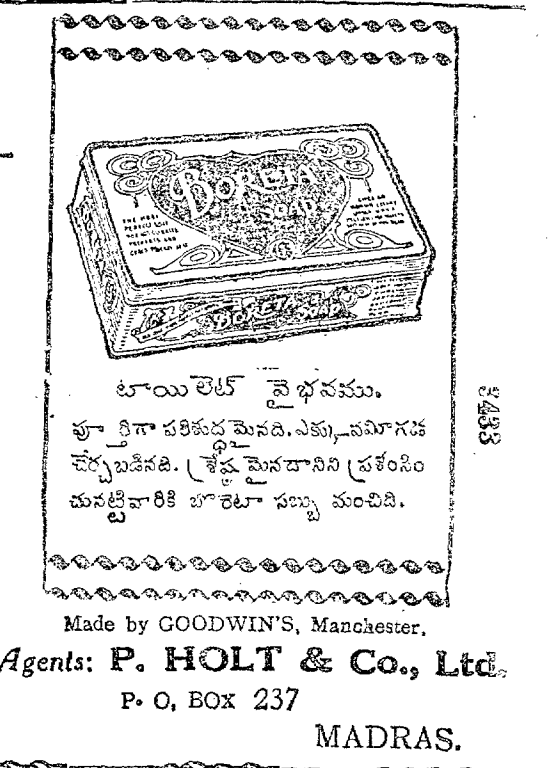 BORETA
SOAP
THE MOST
BORETA SOAP
టాయిలెట్ వైభవము.
పూర్తిగా పరిశుద్ధమైనది. ఎక్కువమీగడ
చేర్చబడినది. శ్రేష్ఠమైనదానిని ప్రశంసిం
చునట్టివారికి బొరెటా సబ్బు మంచిది.
3433
Made by GOODWIN'S, Manchester.
Agents: P. HOLT & Co., Ltd.
P. O, BOX 237
MADRAS.